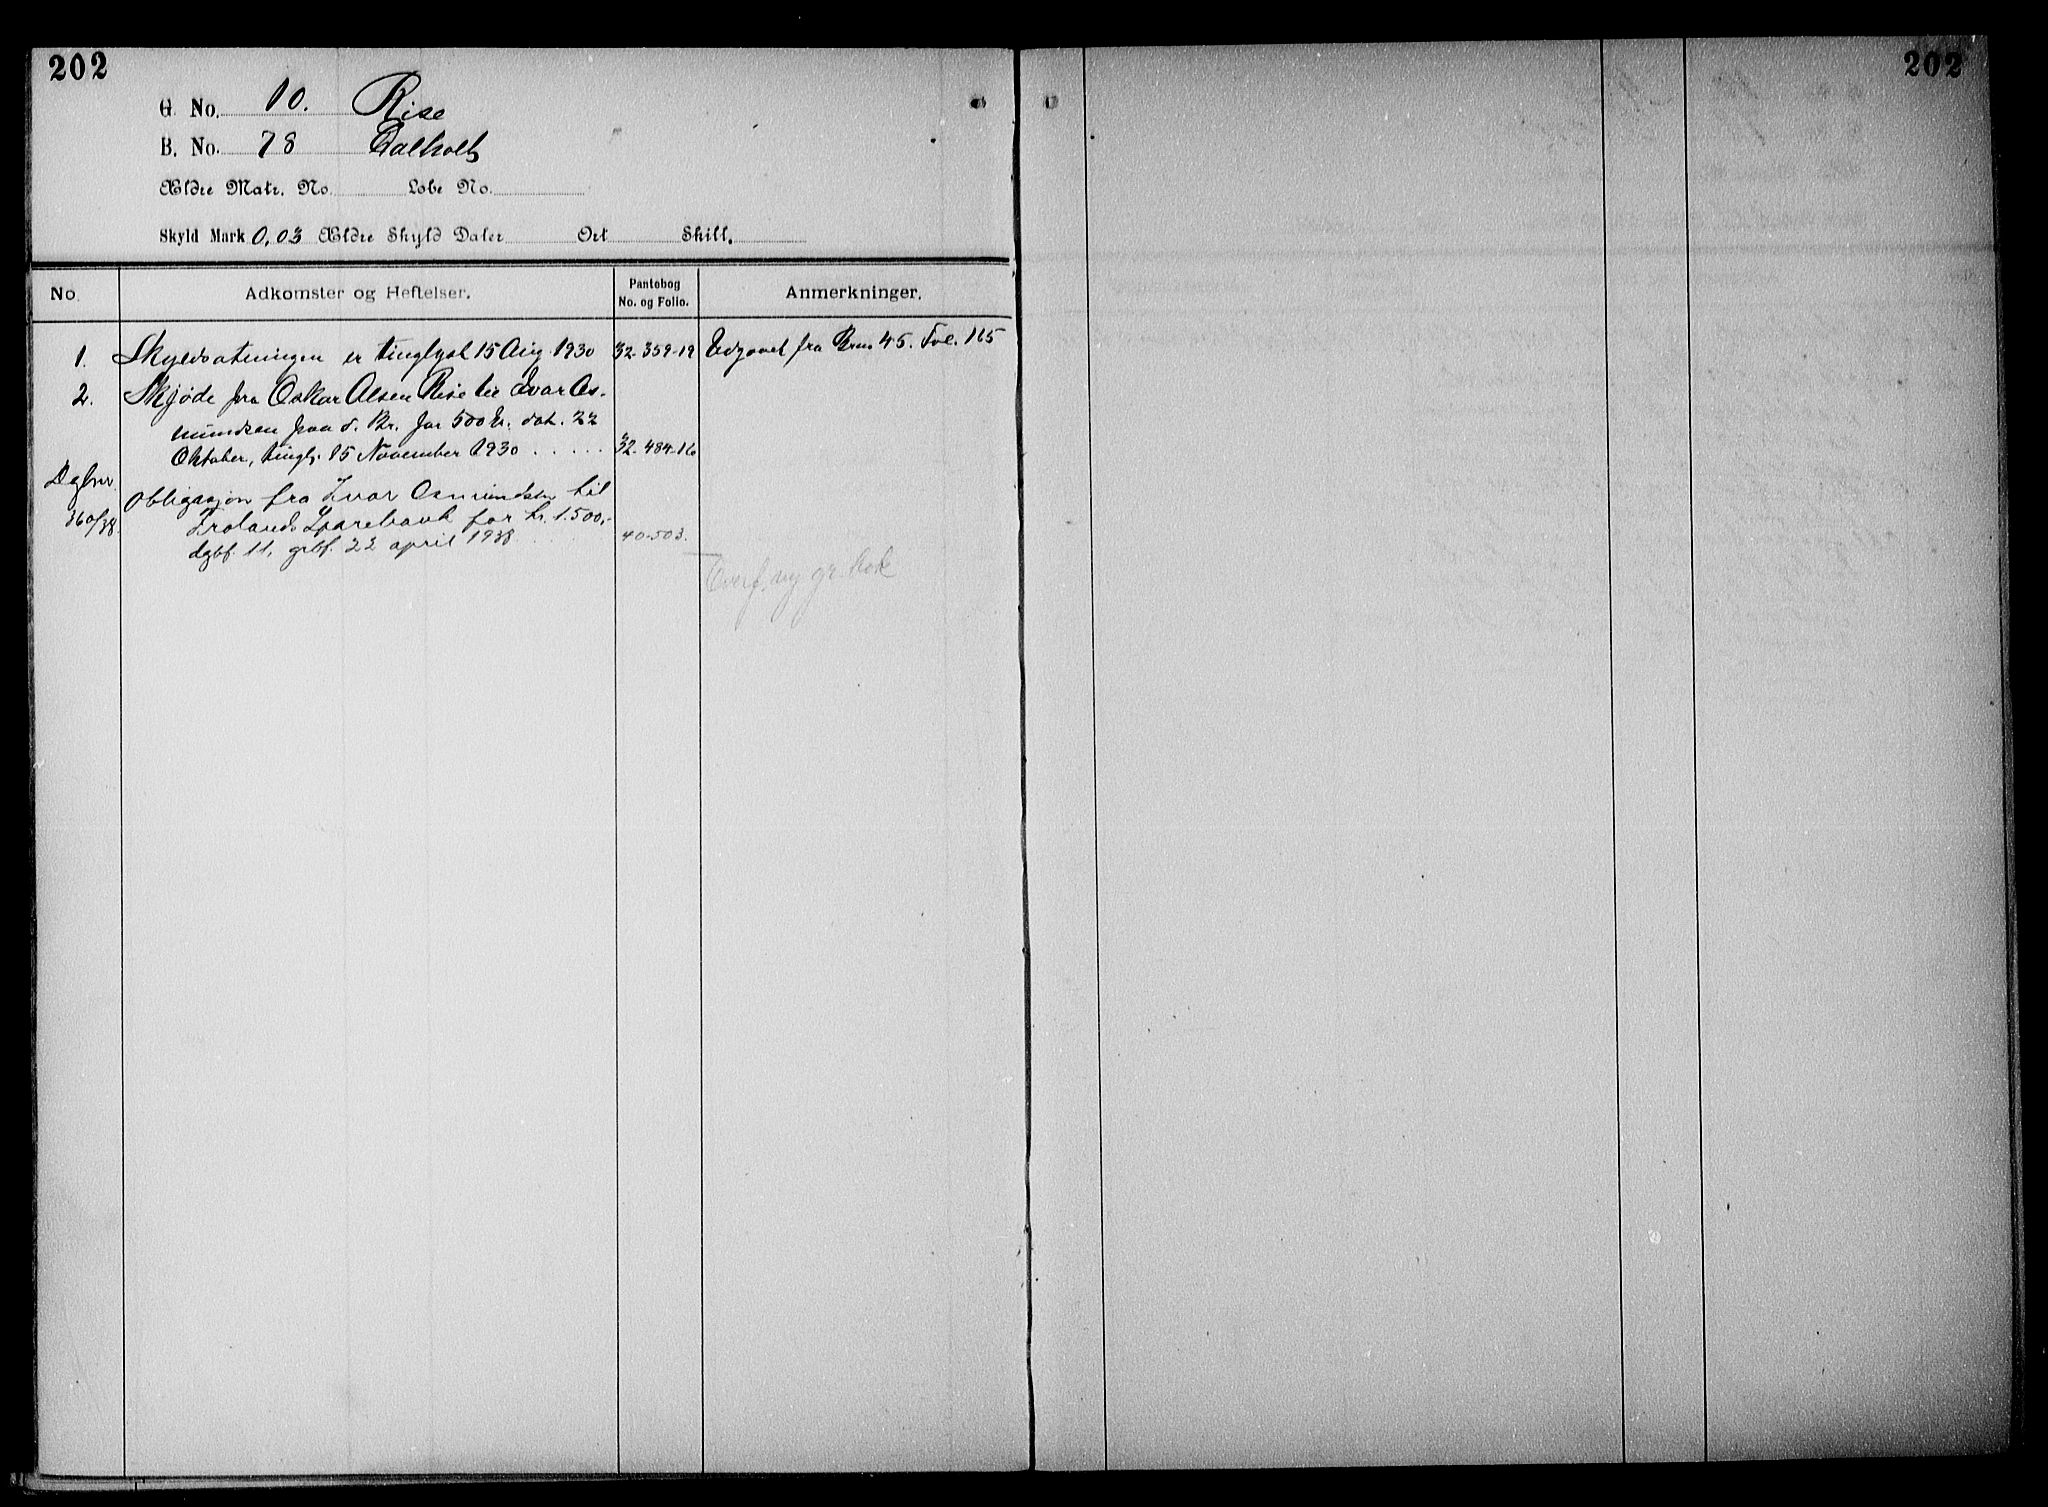 202
202
G. No. 10. Rise
B. No. 78 Dalholt
Ældre Matr. No. Løbe No.
Skyld Mark 0,03 Ældre Skyld Daler Ort Skill.
No. Adkomster og Heftelser. Pantebog No. og Folio. Anmerkninger.
1. Skyldsætningen er tinglyst 15 Aug 1930 32-359-19 Udgaaet fra Brno 45. Fol. 165
2. Skjøde fra Oskar Olsen Rise til Ivar Os-
mundsen paa d. Br. for 500 kr. dat. 22
Oktober, tingl. 15 November 1930 32-484-16
Dgbnr. 360/38. Obligasjon fra Ivar Osmundsen til
Frolands Sparebank for kr. 1.500,-
dgbf. 11, grbf. 22 april 1938 40-503.
Overf. ny gr. bok